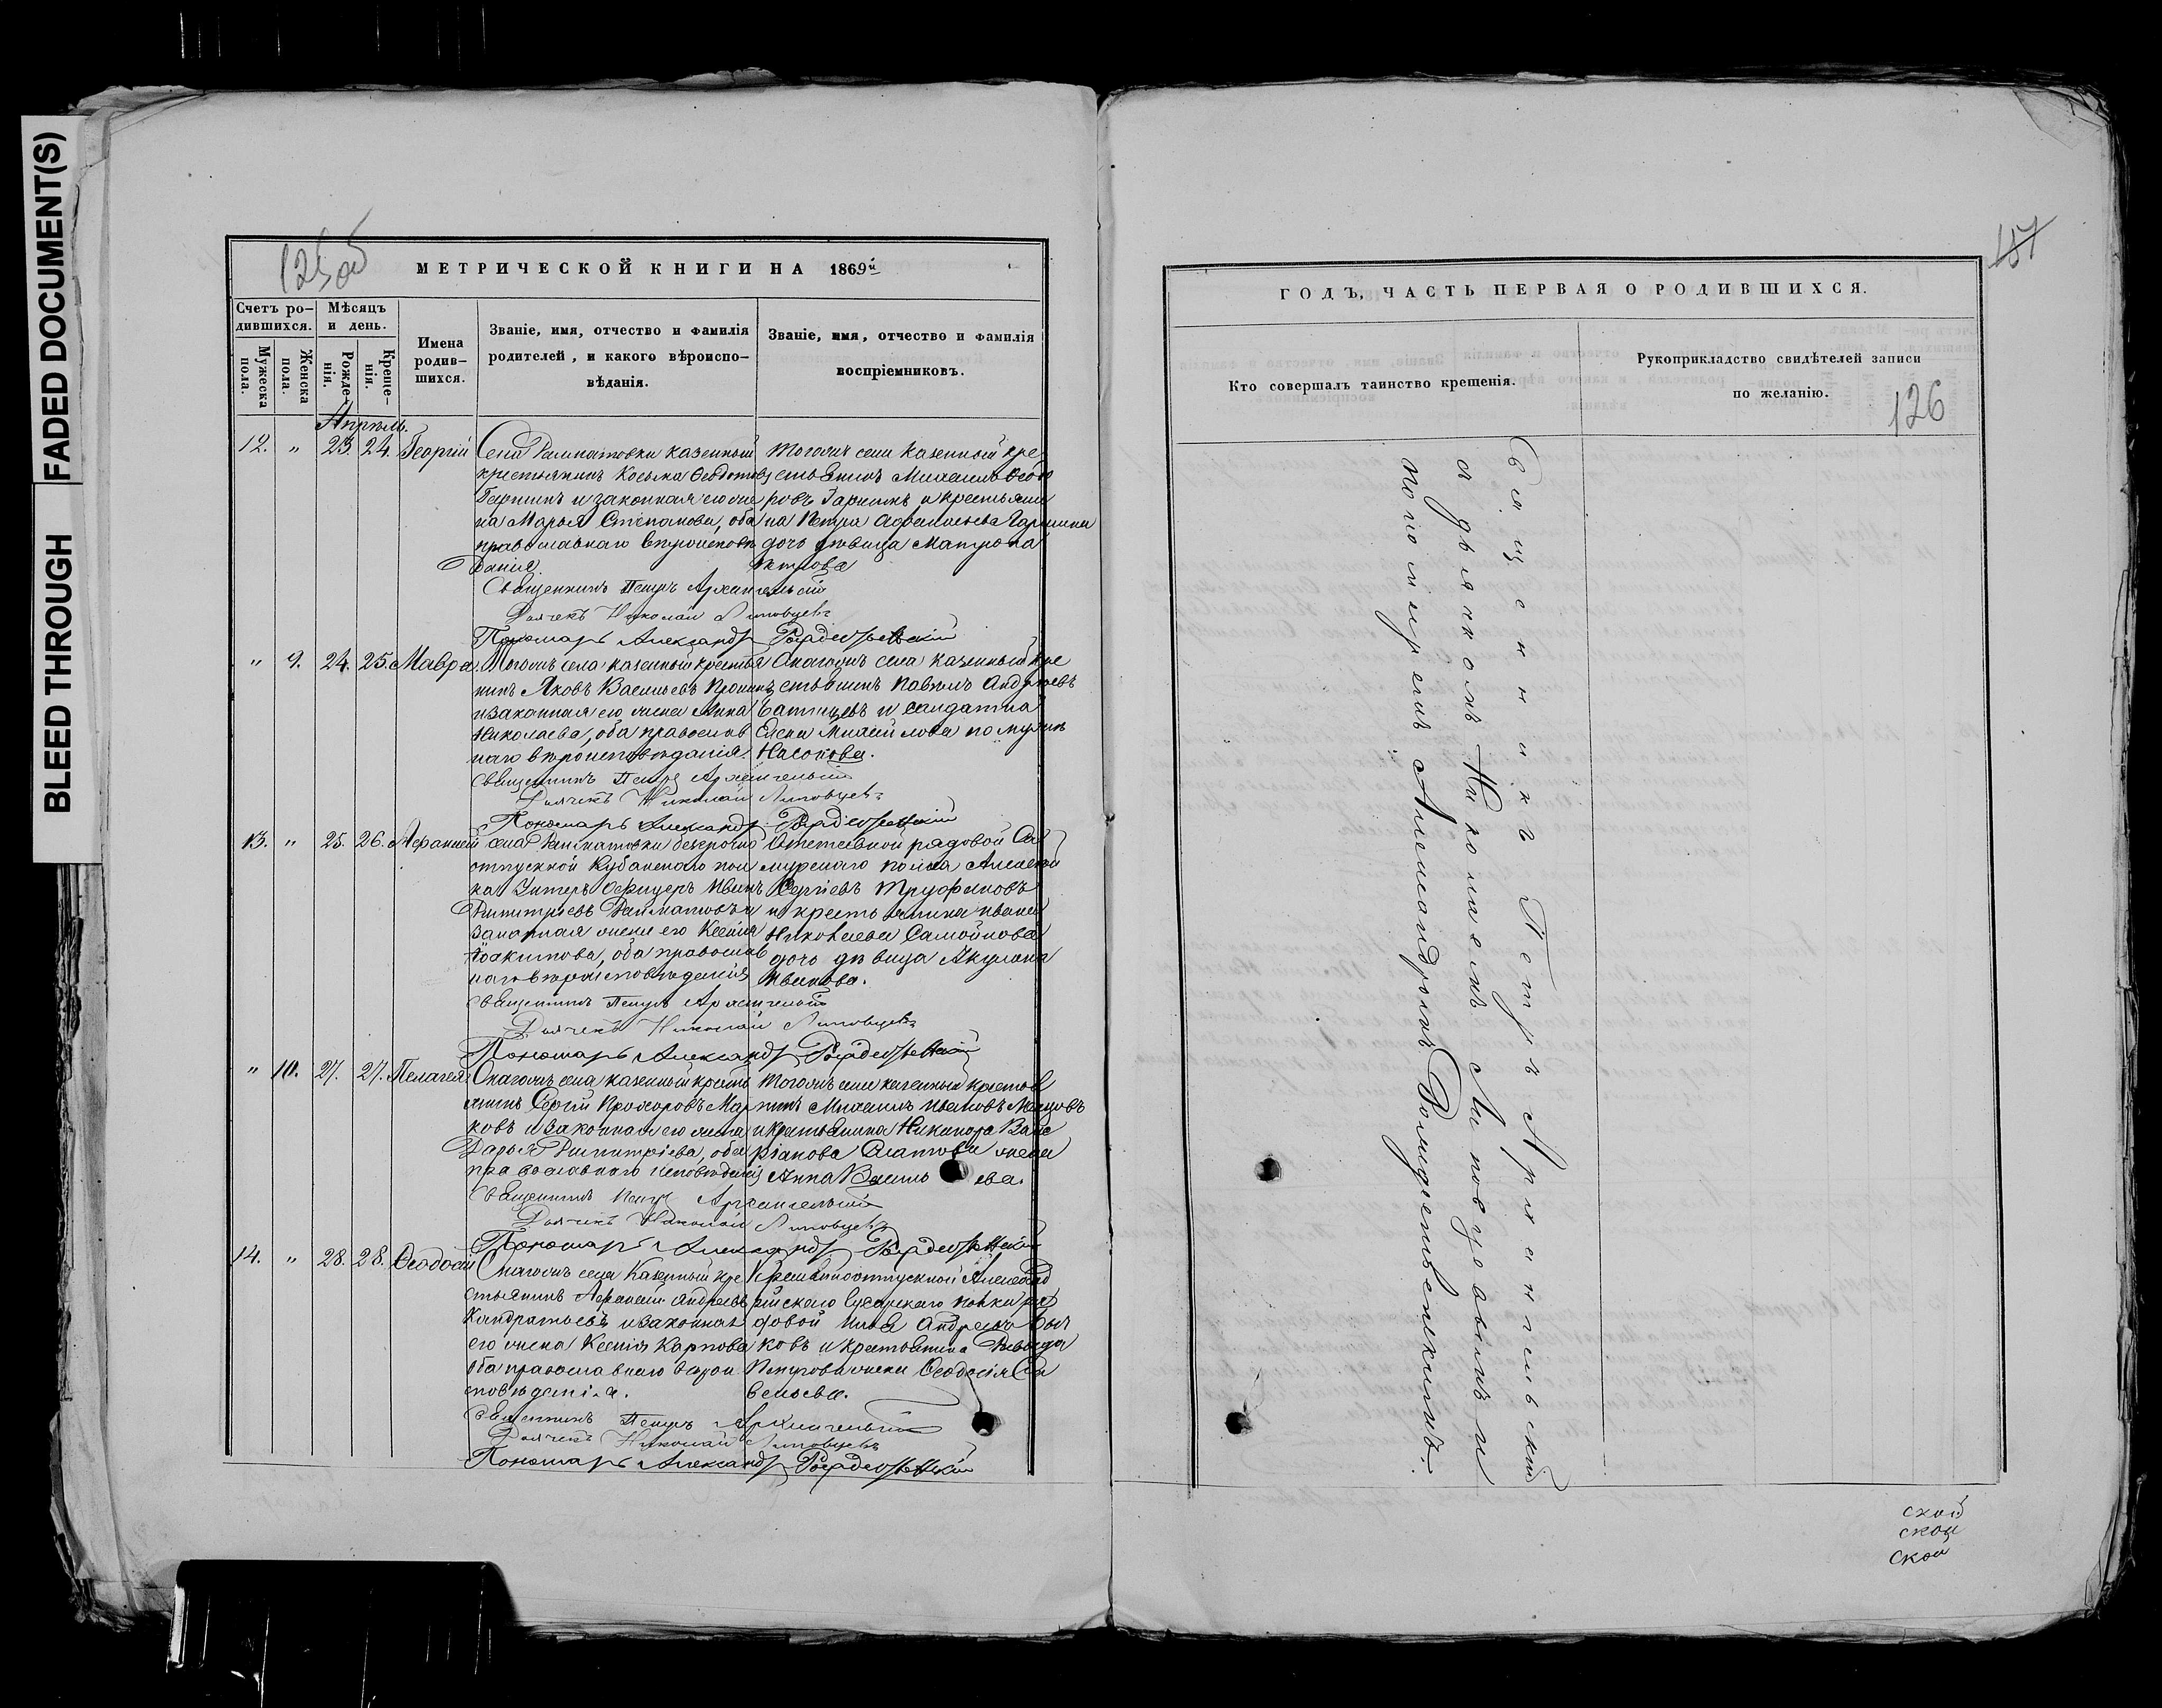 FADED DOCUMENT(S)
BLEED THROUGH
125об
МЕТРИЧЕСКОЙ КНИГИ НА 1869й
Счетъ ро-
дившихся.
Мѣсяцъ
и день.
Мужеска
пола.
Женска
пола.
Рожде-
нія.
Креще-
нія.
Имена
родив-
шихся.
Званіе, имя, отчество и фамилія
родителей, и какого вѣроиспо-
вѣданія.
Званіе, имя, отчество и фамилія
воспріемниковъ.
Апрѣль.
12. " 23. 24. Георгій
Села казенный
крестьянинъ Косьма
и законная его же
на Марья Стефанова, оба
православнаго вѣроисповѣ
данія.
Тогожъ села казенный кре
стьянинъ Михаилъ Ѳедо
ровъ и крестьяни
на Петра
дочь дѣвица Матрона
Петрова
Священникъ Петръ Архангельскій
Дьячекъ Николай Липовцевъ
Пономарь Александръ Рождественскій
" 9. 24. 25. Мавра
Тогожъ села казенный крестья
нинъ Яковъ Васильевъ
и законная его жена Анна
Николаева, оба православ
наго вѣроисповѣданія.
Онагожъ села казенный кре
стьянинъ Павелъ Андреевъ
и солдатка
Елена Михайлова по мужѣ
Насонова.
Священникъ Петръ Архангельскій
Дьячекъ Николай Липовцевъ
Пономарь Александръ Рождественскій
13. " 25. 26. Аѳанасій
села безсрочно
отпускной Кубанскаго пол
ка Унтеръ Офицеръ Иванъ
Димитріевъ и
законная жена его Ксенія
Іоакимова, оба православ
наго вѣроисповѣданія
рядовой Са
мурскаго полка Алексѣй
Сергіевъ Труфановъ
и крестьянина Ивана
Николаева Самойлова
дочь дѣвица Акулина
Иванова.
Священникъ Петръ Архангельскій
Дьячекъ Николай Липовцевъ
Пономарь Александръ Рождественскій
" 10. 27. 27. Пелагея
Онагожъ села казенный кресть
янинъ Сергій Прохоровъ Мар
ковъ и законная его жена
Дарья Димитріева, оба
православнаго исповѣданія
Тогожъ села казенный крестья
нинъ Михаилъ Ивановъ
и крестьянина Никанора
жена
Анна Василь ева.
Священникъ Петръ Архангельскій
Дьячекъ Николай Липовцевъ
Пономарь Александръ Рождественскій
14. " 28. 28. Ѳеодосій
Онагожъ села казенный кре
стьянинъ Аѳанасій Андреевъ
Кандратьевъ и законная
его жена Ксенія Карпова
оба православнаго вѣрои
сповѣданія.
отпускной Александ
рійскаго Гусарскаго полка ря
довой Илья Андреевъ
ковъ и крестьянина Давыда
Петрова жена Ѳеодосія Са
вельева.
Священникъ Петръ Архангельскій
Дьячекъ Николай Липовцевъ
Пономарь Александръ Рождественскій
157
ГОДЪ, ЧАСТЬ ПЕРВАЯ О РОДИВШИХСЯ.
Кто совершалъ таинство крещенія.
Рукоприкладство свидѣтелей записи
по желанію.
126
Священникъ Петръ Архангельскій
съ дьячкомъ Николаемъ Липовцевымъ и
пономаремъ Александромъ Рождественскимъ.
ской
ской
ской